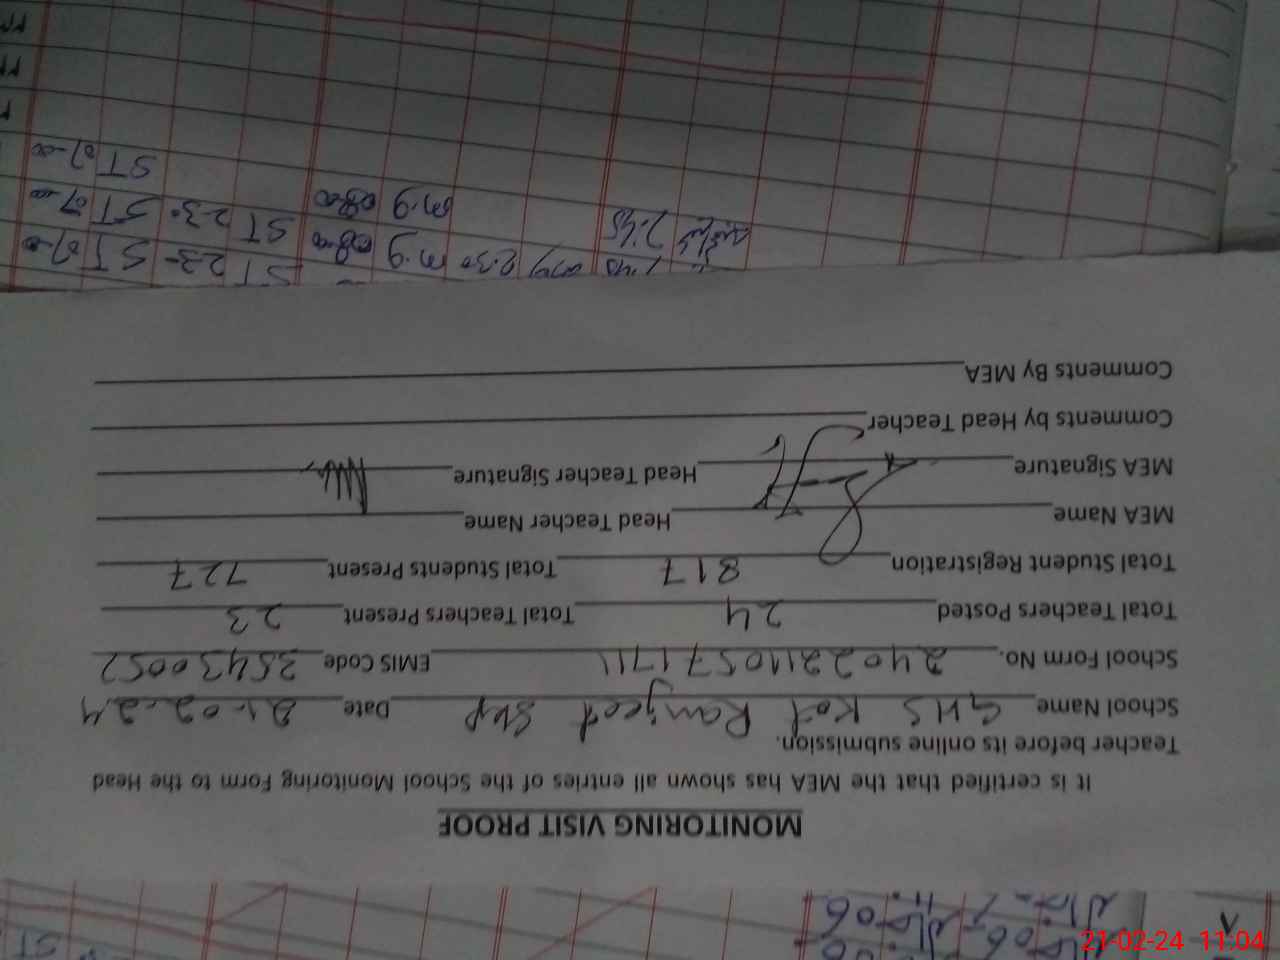 MONITORING VISIT PROOF
It is certified that the MEA has shown all entries of the School Monitoring Form to the Head
Teacher before its online submission.
School Name GHS Kot Ranjeet Skp Date 21-02-24
School Form No. 24022110571711 EMIS Code 35430052
Total Teachers Posted 24 Total Teachers Present 23
Total Student Registration 817 Total Students Present 727
MEA Name Head Teacher Name
MEA Signature Head Teacher Signature
Comments by Head Teacher
Comments By MEA
1:40 2:30 m.g 08-00 ST 2-30 ST 07-00
2:45 m.g 08-00 ST 2-30 ST 07-00
ST 07-00
21-02-24 11:04